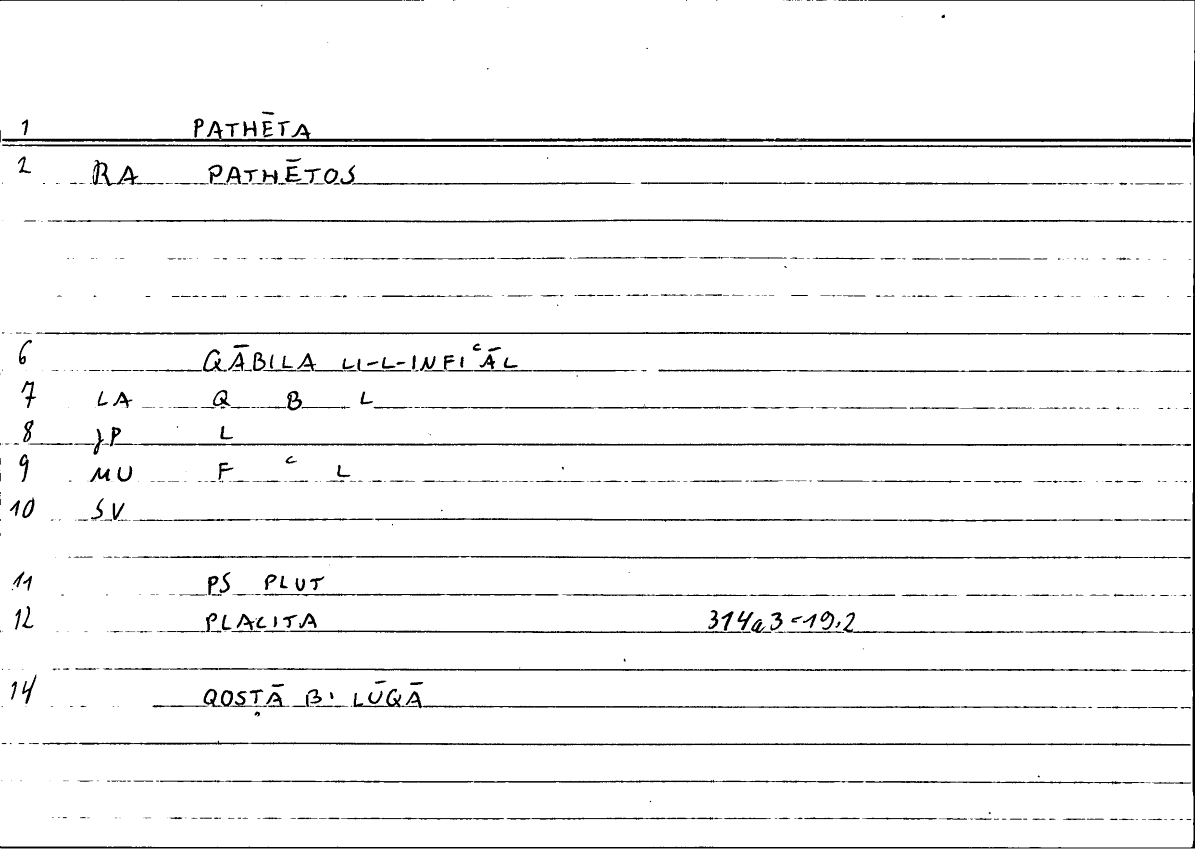 1 PATHĒTA
2 RA PATHĒTOS
6 QĀBILA LI-L-INFIᶜĀL
7 LA Q B L
8 JP L
9 MU F ᶜ L
10 SV
11 PS PLUT
12 PLACITA 314a3=19,2
14 QOSṬĀ B. LŪQĀ